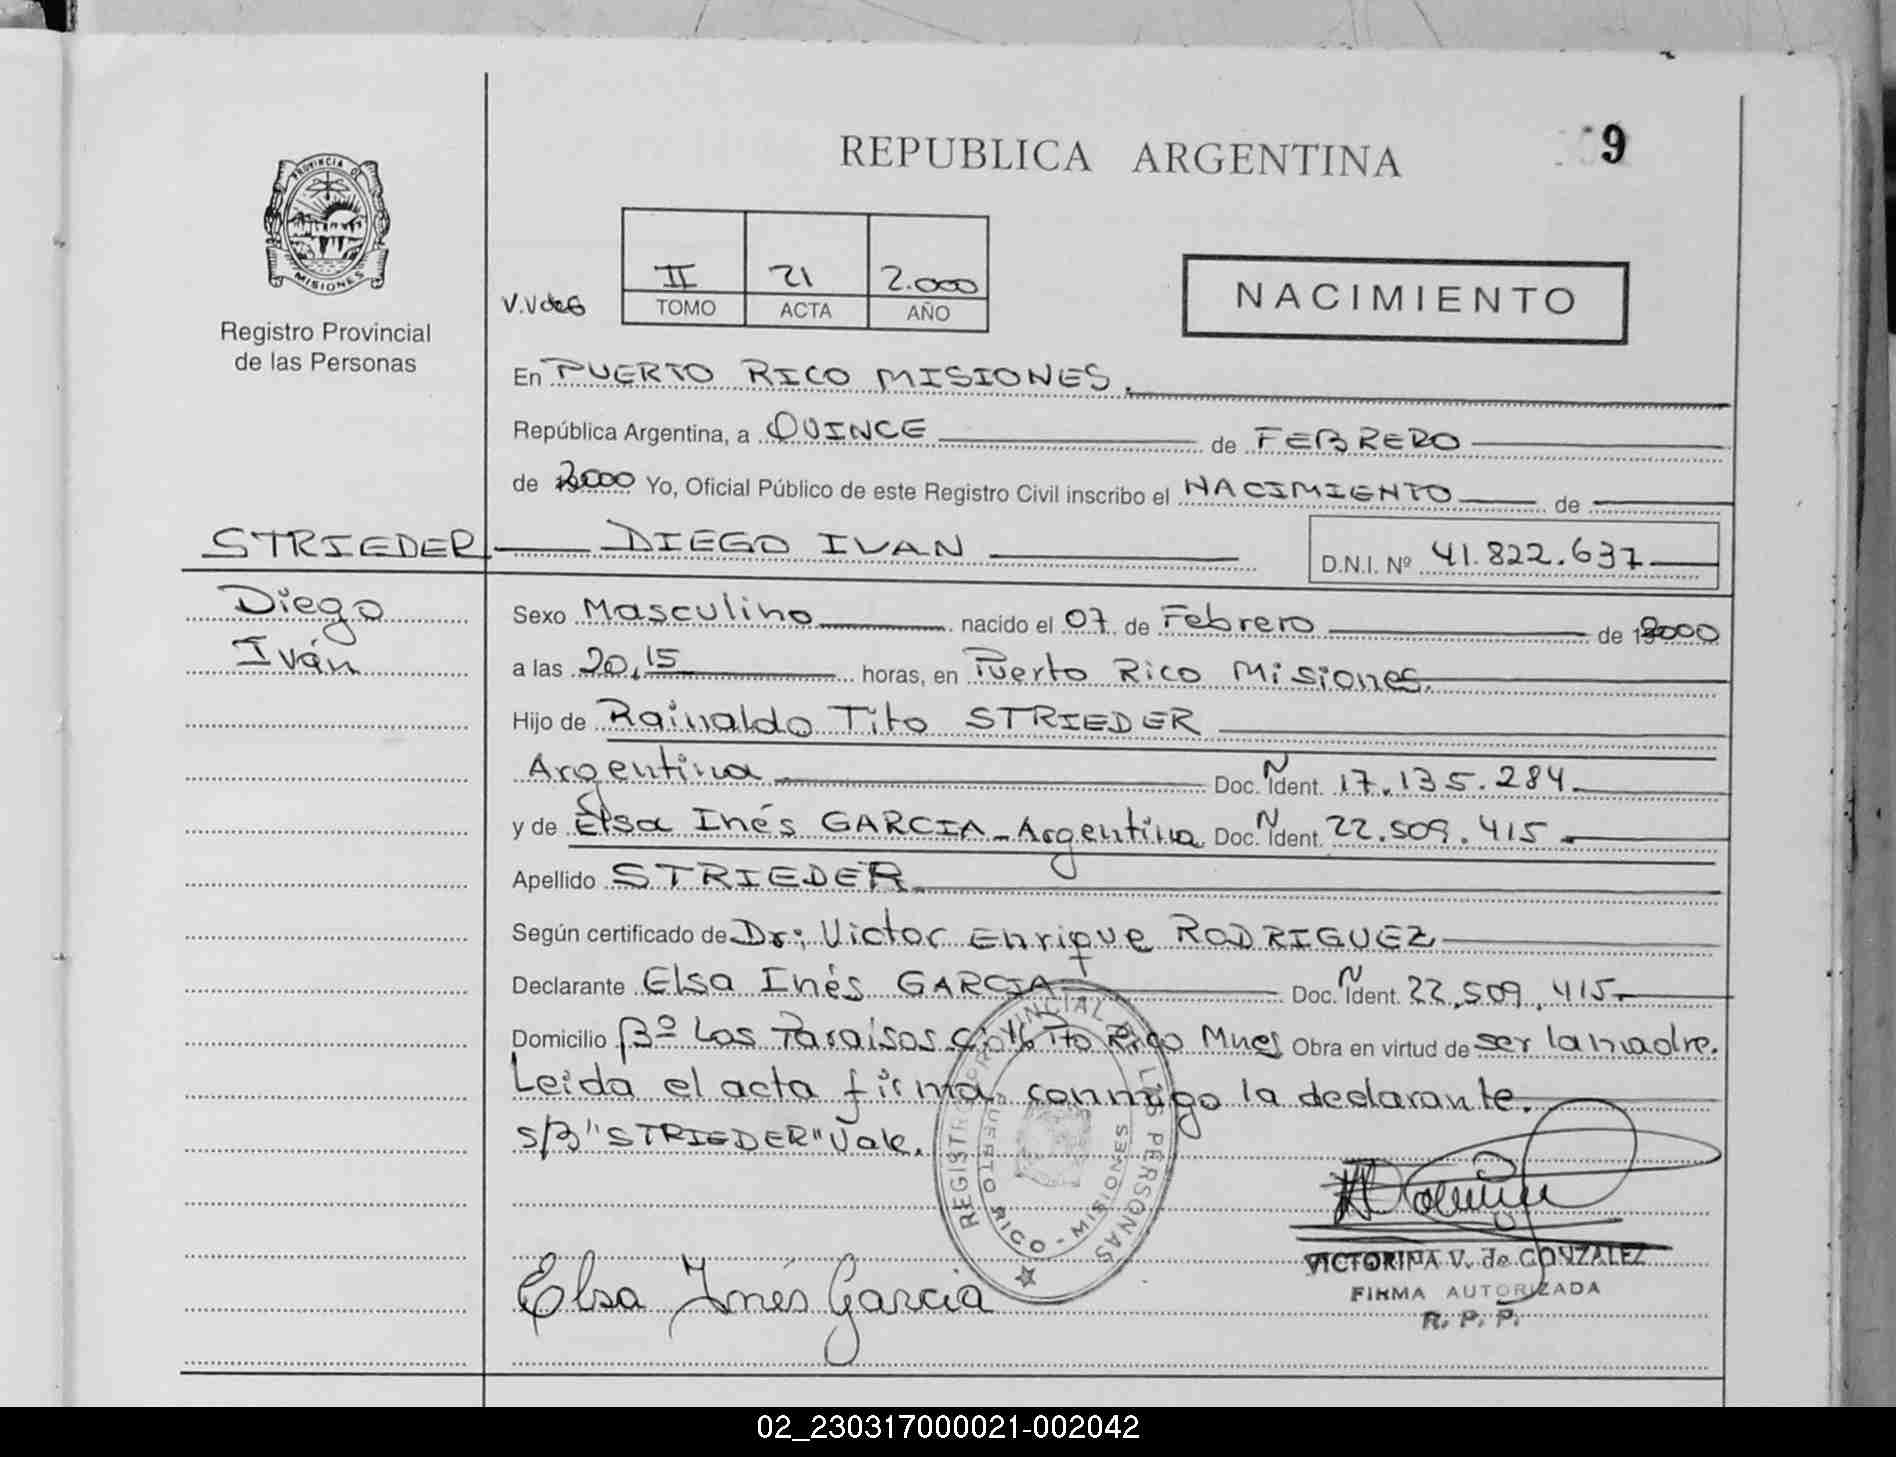 PROVINCIA DE
MISIONES
Registro Provincial
de las Personas
REPUBLICA ARGENTINA
9
V.V de G
II 21 2.000
TOMO ACTA AÑO
NACIMIENTO
En PUERTO RICO MISIONES.
República Argentina, a QUINCE de FEBRERO
de 2000 Yo, Oficial Público de este Registro Civil inscribo el NACIMIENTO de
STRIEDER DIEGO IVAN D.N.I. Nº 41.822.637
Diego
Iván
Sexo Masculino nacido el 07 de Febrero de 2000
a las 20,15 horas, en Puerto Rico Misiones.
Hijo de Rainaldo Tito STRIEDER
Argentina Doc. N Ident. 17.135.284
y de Elsa Inés GARCIA - Argentina Doc. N Ident. 22.509.415
Apellido STRIEDER
Según certificado de Dr: Victor Enrique RODRIGUEZ
Declarante Elsa Inés GARCIA Doc. N Ident. 22.509.415
Domicilio Bº Los Paraisos Pto Rico Mnes Obra en virtud de ser la madre.
Leida el acta firma conmigo la declarante.
S/B "STRIEDER" Vale.
REGISTRO PROVINCIAL DE LAS PERSONAS
PUERTO RICO - MISIONES
VICTORINA V. de GONZALEZ
FIRMA AUTORIZADA
R. P. P.
Elsa Inés Garcia
02_230317000021-002042